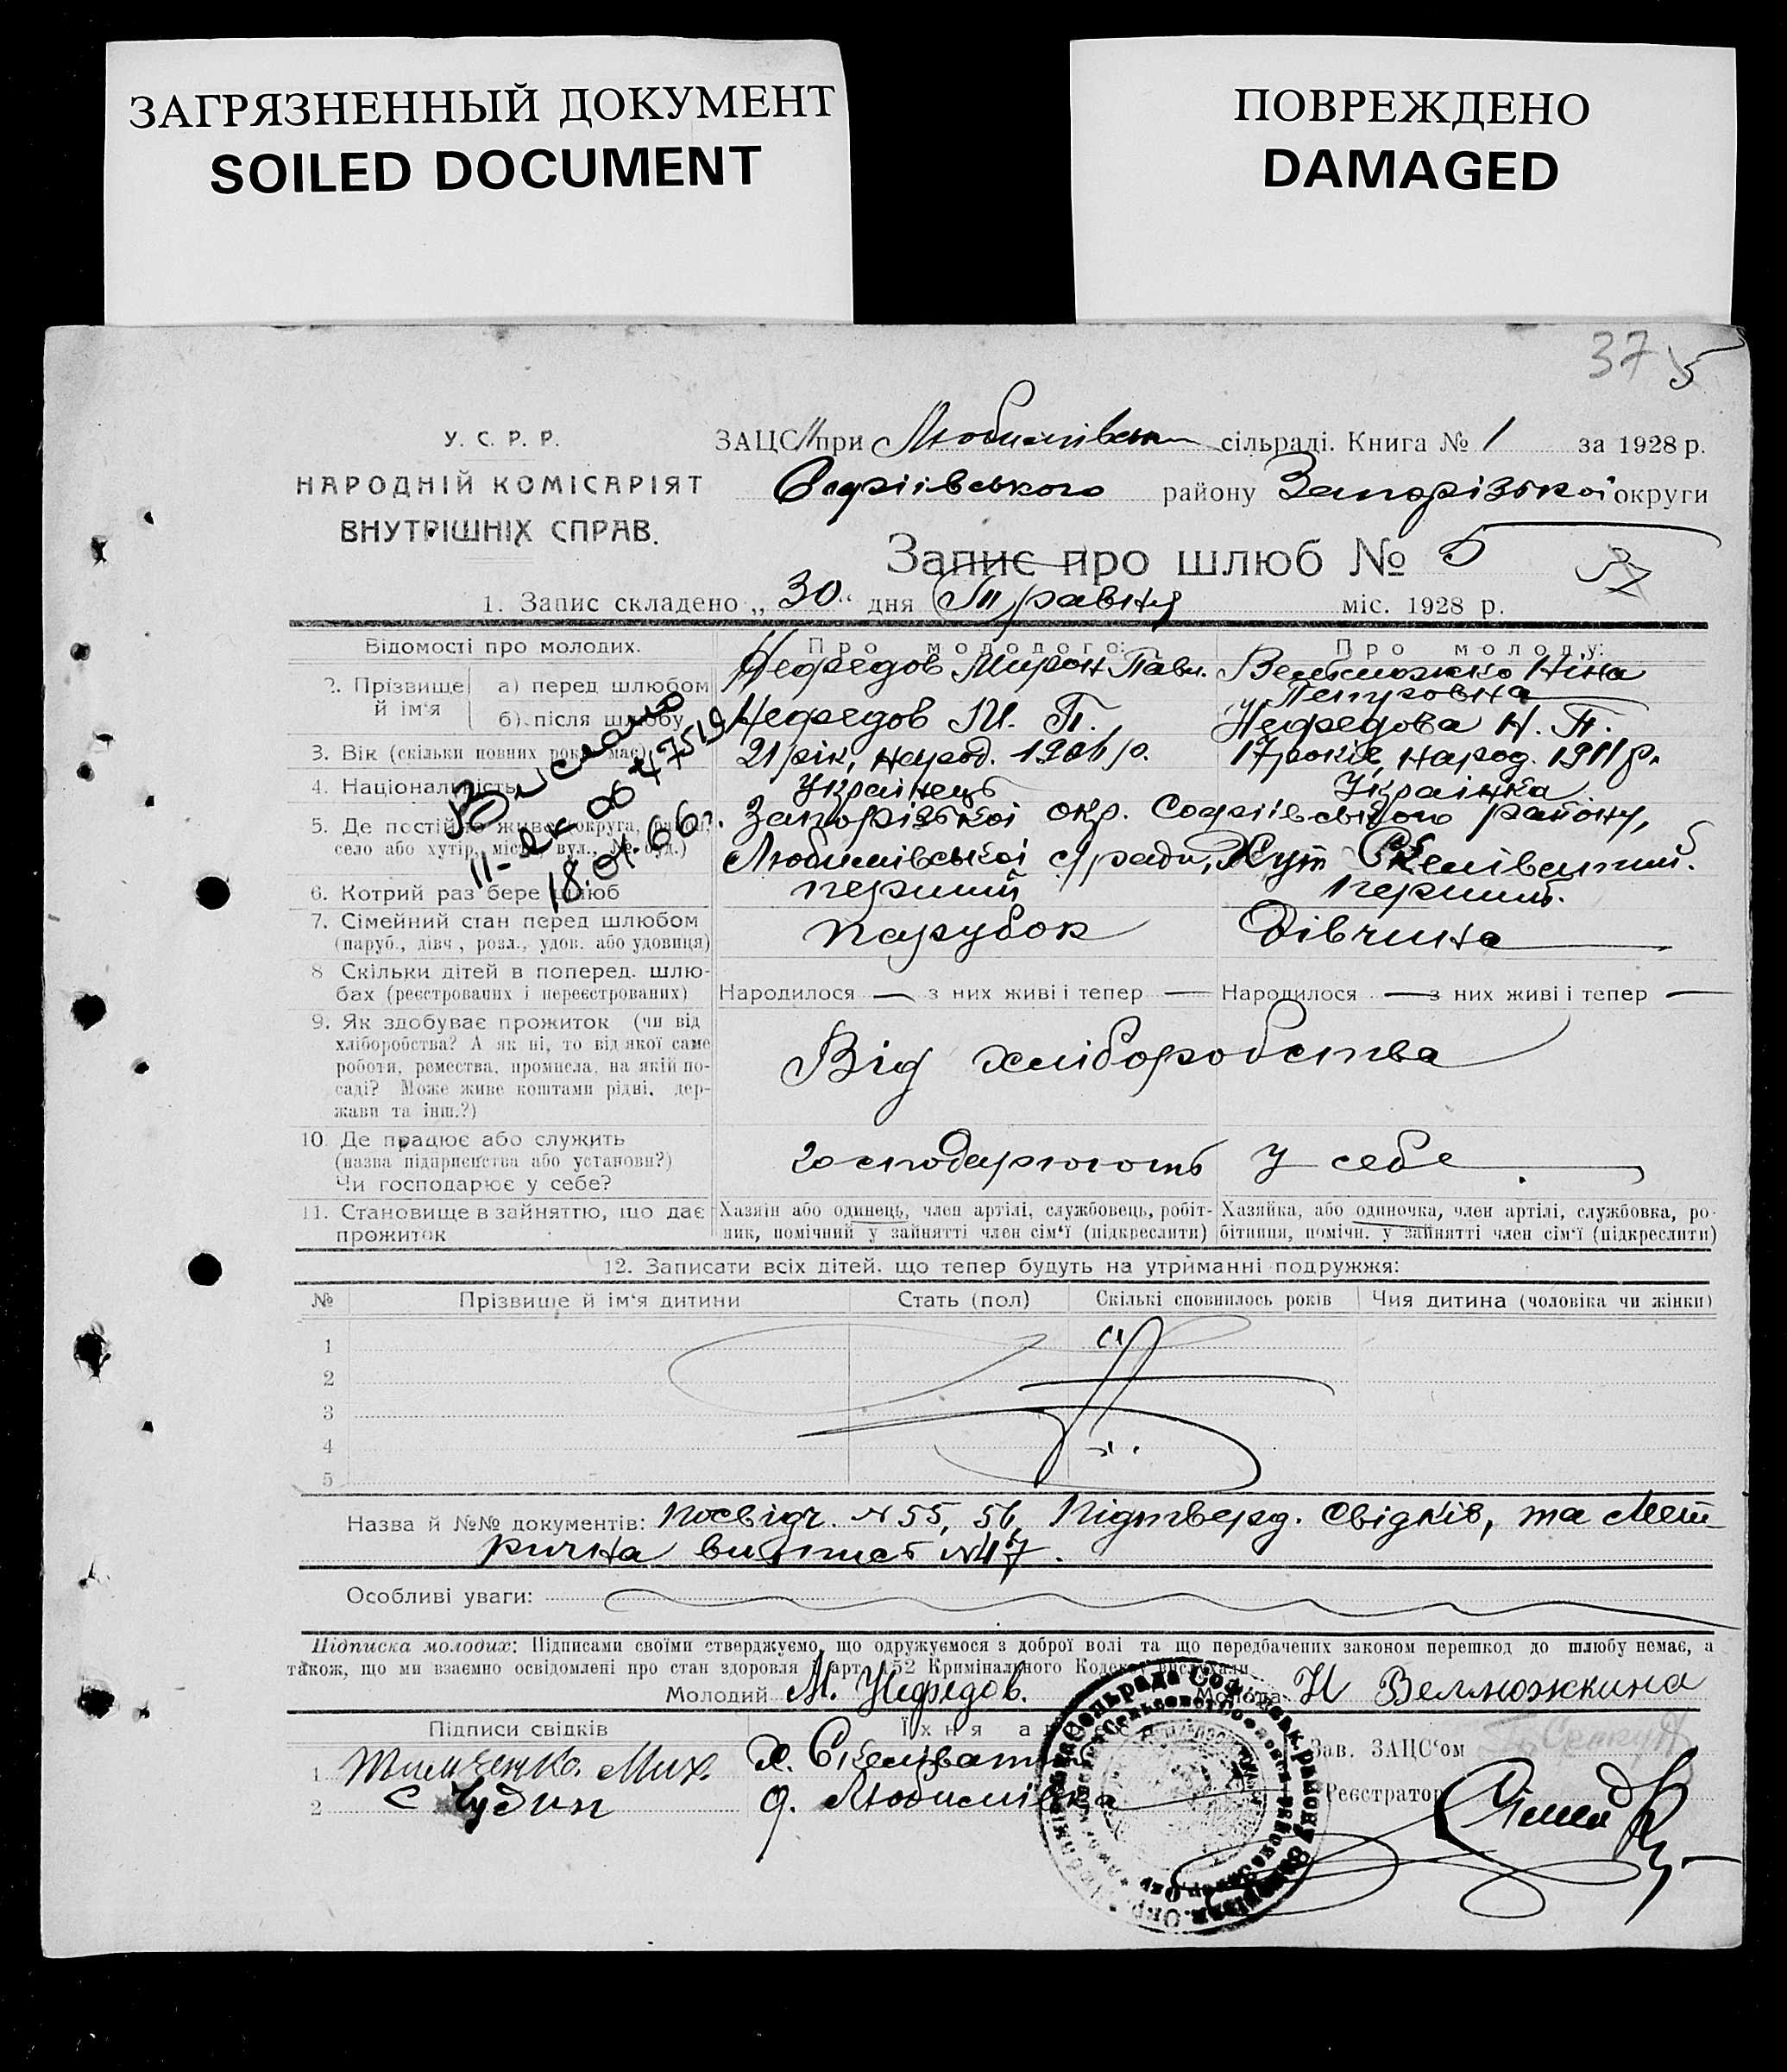 ЗАГРЯЗНЕННЫЙ ДОКУМЕНТ
SOILED DOCUMENT
ПОВРЕЖДЕНО
DAMAGED
37 5
У. С. Р. Р.
НАРОДНІЙ КОМІСАРІЯТ
ВНУТРІШНІХ СПРАВ.
ЗАЦС при Любимівськ сільраді. Книга № 1 за 1928 р.
Софіївського району Запорізької округи
Запис про шлюб № 5
1. Запис складено „ 30 “ дня Травня міс. 1928 р.
Відомості про молодих. Про молодого: Про молоду:
2. Прізвище й ім'я
а) перед шлюбом Нефедов Мирон Павл. Вельможко Ніна Петровна
б) після шлюбу Нефедов М. П. Нефедова Н. П.
3. Вік (скільки повних років має) 21 рік, народ. 1906 р. 17 років, народ. 1911 р.
4. Національність Українець Українка
5. Де постійно живе (округа, район, Запорізької окр. Софіївського району,
село або хутір, місто, вул., № буд.) Любимівської с/ради, Хут Скелюватий.
Выслано
11-ек 0647519
18.01.66г.
6. Котрий раз бере шлюб перший перший.
7. Сімейний стан перед шлюбом парубок Дівчина
(паруб., дівч., розл., удов. або удовиця)
8 Скільки дітей в поперед. шлю-
бах (реєстрованих і нереєстрованих) Народилося — з них живі і тепер — Народилося — з них живі і тепер —
9. Як здобуває прожиток (чи від
хліборобства? А як ні, то від якої саме
роботи, ремества, промисла, на якій по-
саді? Може живе коштами рідні, дер-
жави та інш.?)
Від хліборобства
10. Де працює або служить
(назва підприємства або установи?)
Чи господарює у себе?
господарюють у себе
11. Становище в зайняттю, що дає
прожиток
Хазяїн або одинець, член артілі, службовець, робіт-
ник, помічний у зайнятті член сім'ї (підкреслити)
Хазяйка, або одиночка, член артілі, службовка, ро-
бітниця, помічн. у зайнятті член сім'ї (підкреслити)
12. Записати всіх дітей, що тепер будуть на утриманні подружжя:
№ Прізвище й ім'я дитини Стать (пол) Скількі сповнилось років Чия дитина (чоловіка чи жінки)
1
2
3
4
5
Назва й №№ документів: Посвідч. № 55, 56, Підтверд. свідків, та мет-
рична витпись №47.
Особливі уваги:
Підписка молодих: Підписами своїми стверджуємо, що одружуємося з доброї волі та що передбачених законом перешкод до шлюбу немає, а
також, що ми взаємно освідомлені про стан здоровля й арт. 152 Кримінального Кодексу вислухали.
Молодий М. Нефедов. Молода Н Вельможкина
Підписи свідків Їхня адреса
1 Тимченко. Мих. х. Скелюват
2 С Чудин д. Любимівка
Зав. ЗАЦС'ом
Реєстратор